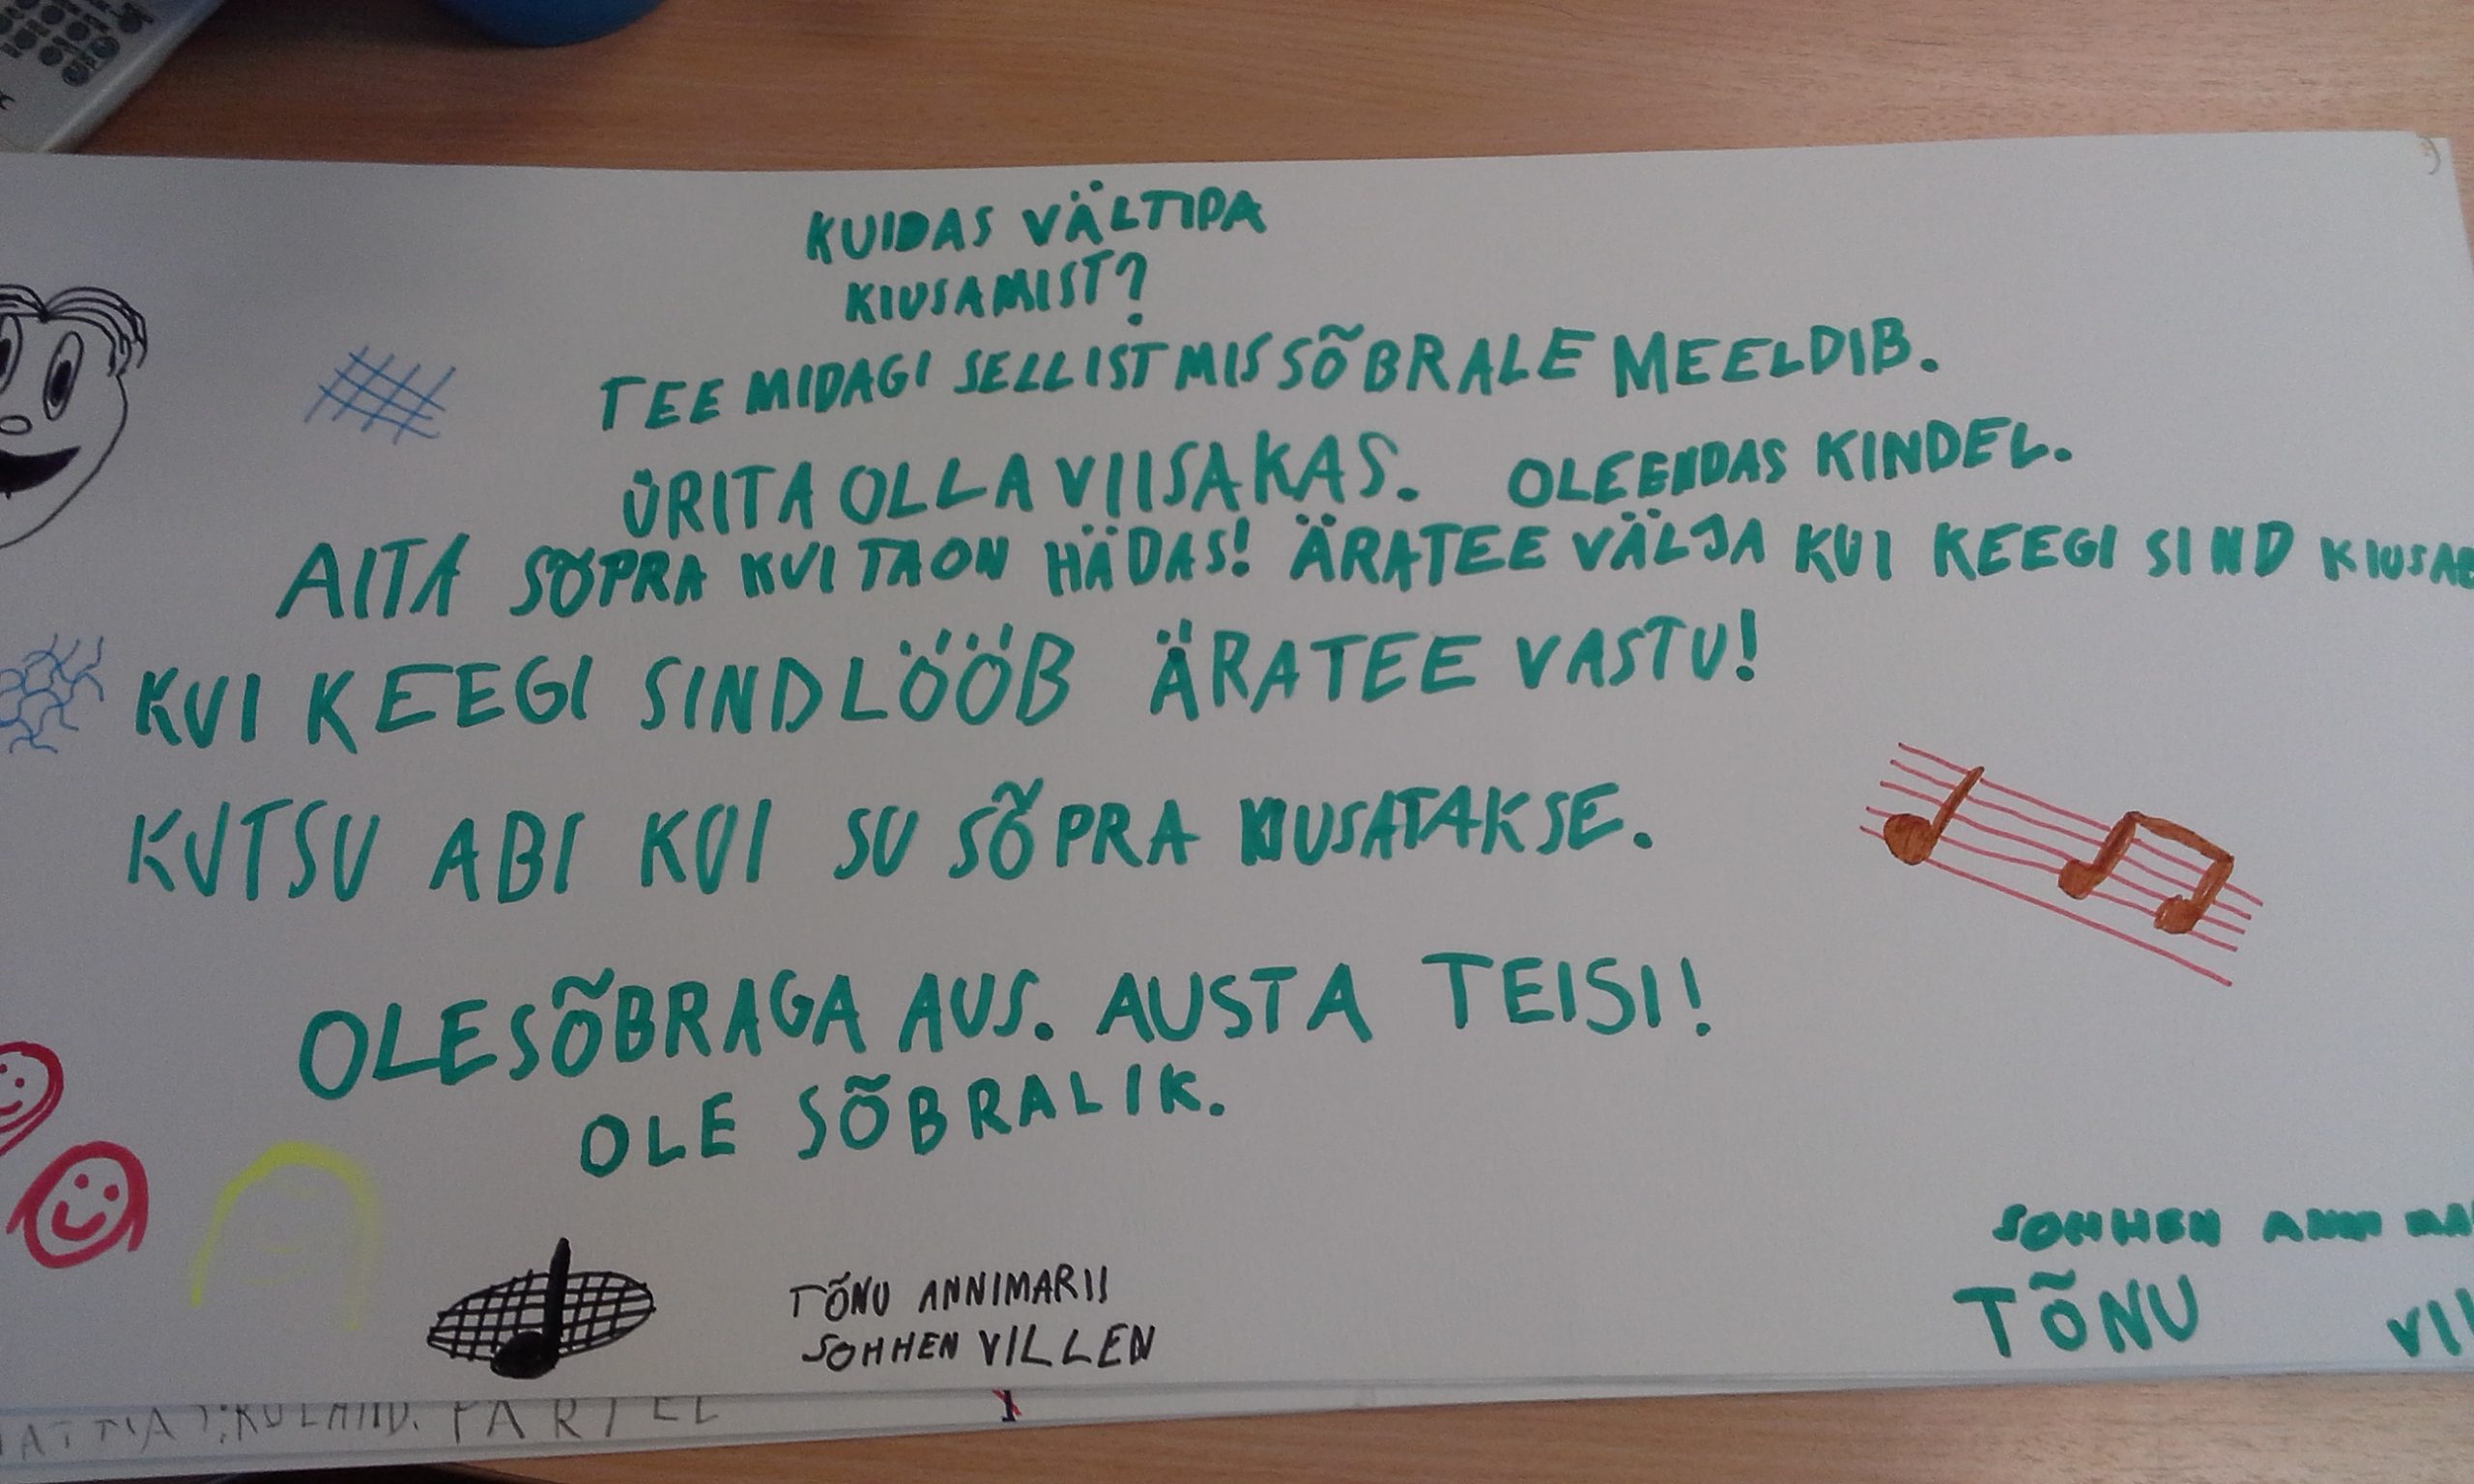 KUIDAS VÄLTIDA
KIUSAMIST?
TEE MIDAGI SELLIST MIS SÕBRALE MEELDIB.
ÜRITA OLLA VIISAKAS. OLE ENDAS KINDEL.
AITA SÕPRA KUI TA ON HÄDAS! ÄRATEE VÄLJA KUI KEEGI SIND
KUI KEEGI SIND LÖÖB ÄRATEE VASTU!
KUTSU ABI KUI SU SÕPRA KIUSATAKSE.
OLE SÕBRAGA AUS. AUSTA TEISI!
OLE SÕBRALIK.
SOHHEN ANNI
TÕNU
TÕNU ANNIMARII
SOHHEN VILLEN